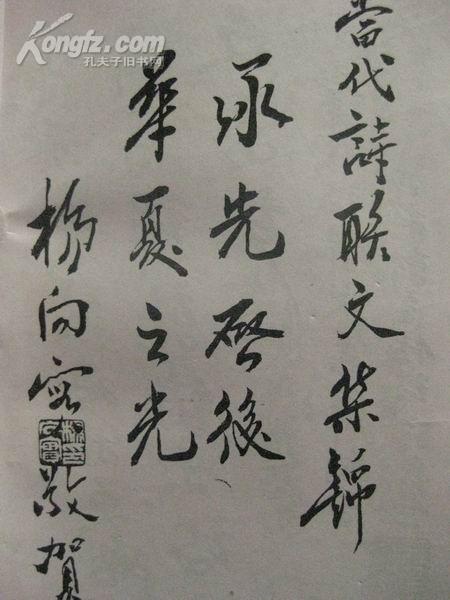 Kongfz.com
孔夫子旧书网
當代詩聯文集錦
承先啓後
華夏之光
楊向敬賀